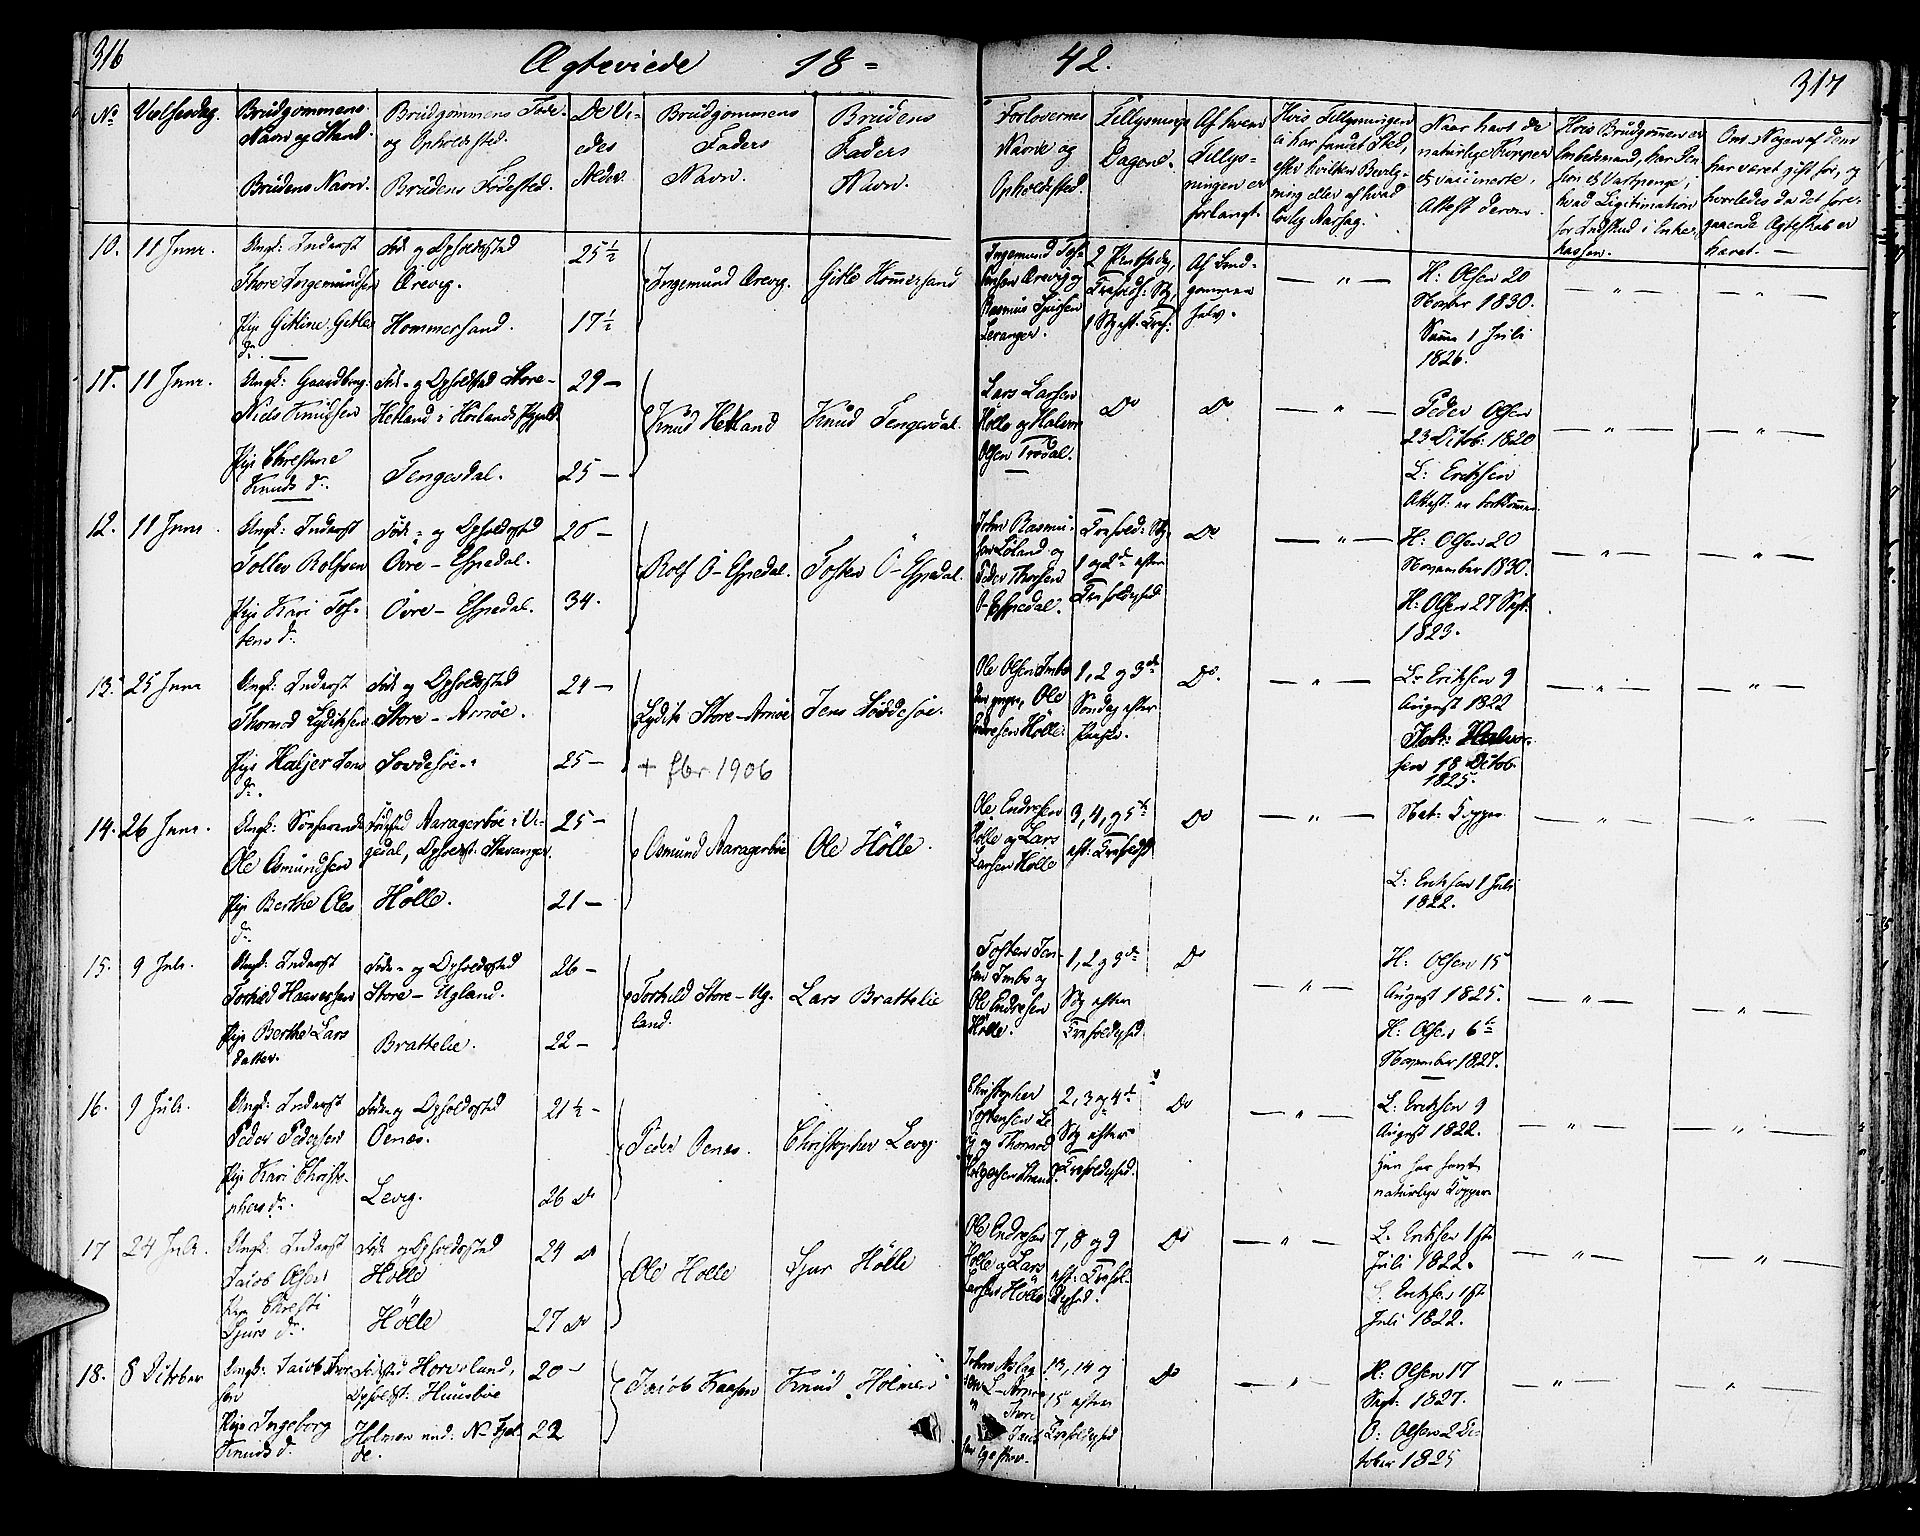 316
Ægteviede 18=
42.
317
No
Vielsesdag.
Brudgommens
Navn og Stand.
Brudens Navn.
Brudgommens Føde-
og Opholdsted.
Brudens Fødested.
De Vi-
edes
Alder.
Brudgommens
Faders
Navn.
Brudens
Faders
Navn.
Forlovernes
Navne og
Opholdsted.
Tillysnings
Dagene.
Af hvem
Tillys-
ningen er
forlangt.
Hvis Tillysningen
ei har fundet Sted,
efter hvilken Bevilg-
ning eller af hvad
lovlig Aarsag.
Naar havt de
naturlige Kopper
el. vaccinerte,
Attest derom.
Hvis Brudgommen er
Embedsmand, har Pen-
sion el. Vartpenge,
hvad Legitimation
for Indskud i Enke-
kassen.
Om Nogen af dem
har været gift før, og
hvorledes da det fore-
gaaende Ægteskab er
hævet.
10.
11 Juni.
Ungk: Inderst
Thore Ingemundsen
Pige Gitline Gitles
d.
Føde og Opholdsted
Ørevig.
Hommersand.
25½
17½
Ingemund Ørevig.
Gitle Hommersand
Ingemund Tos-
tensen Ørevig og
Rasmus
Leranger.
2 Pintsedag,
Trefold: Sdg,
1 Sdg eft. Tref:
Af Brud-
gommen
selv.
— " —
H: Olsen 20
Novbr 1830.
Samme 1 Juli
1826.
— " —
— " —
11.
11 Juni.
Ungk: Gaardbrug.
Niels Knudsen
Pige Christine
Knuds d.
Føde- og Opholdsted Store-
Hetland i Høilands Prgjeld
Tengesdal.
29 —
25 —
Knud Hetland
Knud Tengesdal.
Lars Larsen
Hølle og Halvor
Olsen Trødal.
Do
Do
— " —
Peder Olsen
23 Octob: 1820
L: Eriksen
Attest: er bortkommen.
— " —
— " —
12.
11 Juni
Ungk: Inderst
Tollev Rolfsen
Pige Kari Tos-
tens d.
Føde- og Opholdsted
Øvre-Espedal.
Øvre-Espedal.
26 —
34.
Rolf Ö-Espedal.
Tosten Ö-Espedal.
John Rasmu-
sen Løland og
Peder Thorsen
Ö-Espedal.
Trefold: Sdg.
1 og 2de efter
Trefoldighed
Do
— " —
H: Olsen 20
November 1830.
H: Olsen 27 Sept.
1823.
— " —
— " —
13.
25 Juni
Ungk: Inderst
Thormod Lydiksen
Pige Halfver Jens
d.
Føde og Opholdsted
Store-Amøe.
Soddesøe.
24 —
25 —
Lydik Store-Amøe
+ fbr. 1906
Jens Soddesøe.
Ole Olsen Imbs
den yngre, Ole
Endresen Hølle.
1, 2 og 3de
Søndag efter
Paaske.
Do.
— " —
L: Eriksen 9
August 1822
Joh: Halvor-
sen 18 Octob.
1825.
— " —
— " —
14.
26 Juni.
Ungk: Søefarende
Ole Osmundsen
Pige Berthe Oles
d.
Fødested Aaragerbøe i Vi-
gedal, Opholdst: Stavanger.
Hölle.
25 —
21 —
Osmund Aaragerbøe
Ole Hölle.
Ole Endresen
Hölle og Lars
Larsen Hölle
3, 4, og 5te
eft: Trefoldst
Do
— " —
Nat: Kopper
L: Eriksen 1 Juli
1822.
— " —
— " —
15.
9 Juli.
Ungk: Inderst
Torkild Haavorsen
Pige Berthe Lars
datter.
Føde- og Opholdsted
Store-Ugland.
Brattelie.
26 —
22 —
Torkild Store-Ug-
land.
Lars Brattelie
Tosten Jen-
sen Imbs og
Ole Endresen
Hölle.
1, 2 og 3de
Sdg efter
Trefoldighed.
Do
— " —
H: Olsen 15
August 1825.
H: Olsen 6te
November 1827.
— " —
— " —
16.
9 Juli.
Ungk: Inderst
Peder Pedersen
Pige Kari Christo-
phers d.
Føde- og Opholdsted
Oenæs.
Levig.
21½ —
26 Do
Peder Oenæs.
Christopher Levig
Christopher
Tostensen Le-
vig og Thormod
Holgersen Strand.
2, 3 og 4de
Sdg efter
Trefoldighed.
Do
— " —
L: Eriksen 9
August 1822.
Hun har havt
naturlige Kopper
— " —
— " —
17
24 Juli.
Ungk: Inderst
Jacob Olsen
Pige Christi
Sjurs d.
Føde og Opholdsted
Hölle
Hölle
29 Do
27 Do
Ole Hölle
Sjur Hölle
Ole Endresen
Hölle og Lars
Larsen Hölle
7, 8 og 9
eft: Trefol-
dighed.
Do
— " —
L. Eriksen 1ste
Juli 1822.
L. Eriksen 1ste
Juli 1822.
— " —
— " —
18.
8 Octbr
Ungk: Jacob
sen
Pige Ingeborg
Knuds d.
Fødested Horveland,
Opholdst: Huusbøe
Holmen und: No Fjel-
de.
20 —
22
Jacob Kaasen
Knud Holmen
John Aslag-
sen L-Amøe
og Thore
13, 14 og
15 efter
Trefoldighed
Do
— " —
H: Olsen 17
Sept: 1827.
O: Olsen 2 Oc-
tober 1825
— " —
— " —